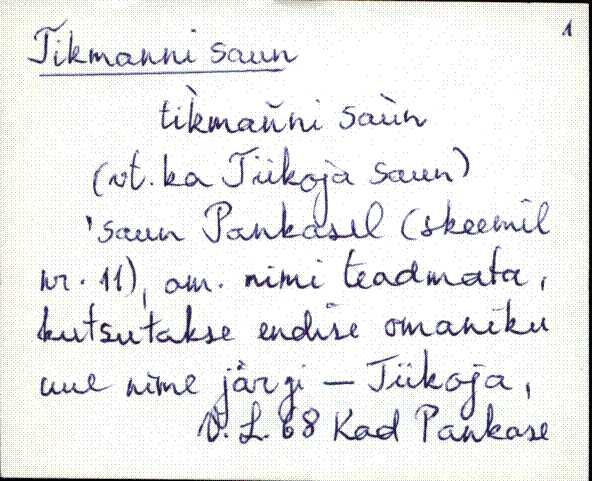 1
Tikmanni saun
tìkman̆ni saùn
(vt. ka Tiikoja saun)
'saun Pankasel (skeemil
nr. 11), om. nimi teadmata,
kutsutakse endise omaniku
uue nime järgi — Tiikoja,
V. L. 68 Kad Pankase